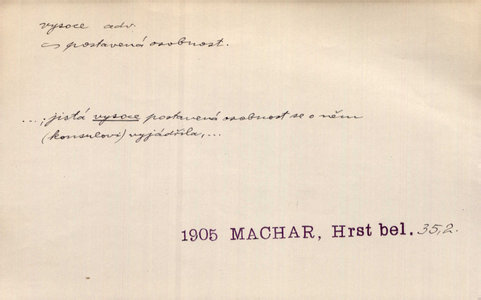 vysoce adv.
~ postavená osobnost.
..., jistá vysoce postavená osobnost se o něm
(konsulovi) vyjádřila,...
1905 MACHAR, Hrst bel. 35,2.